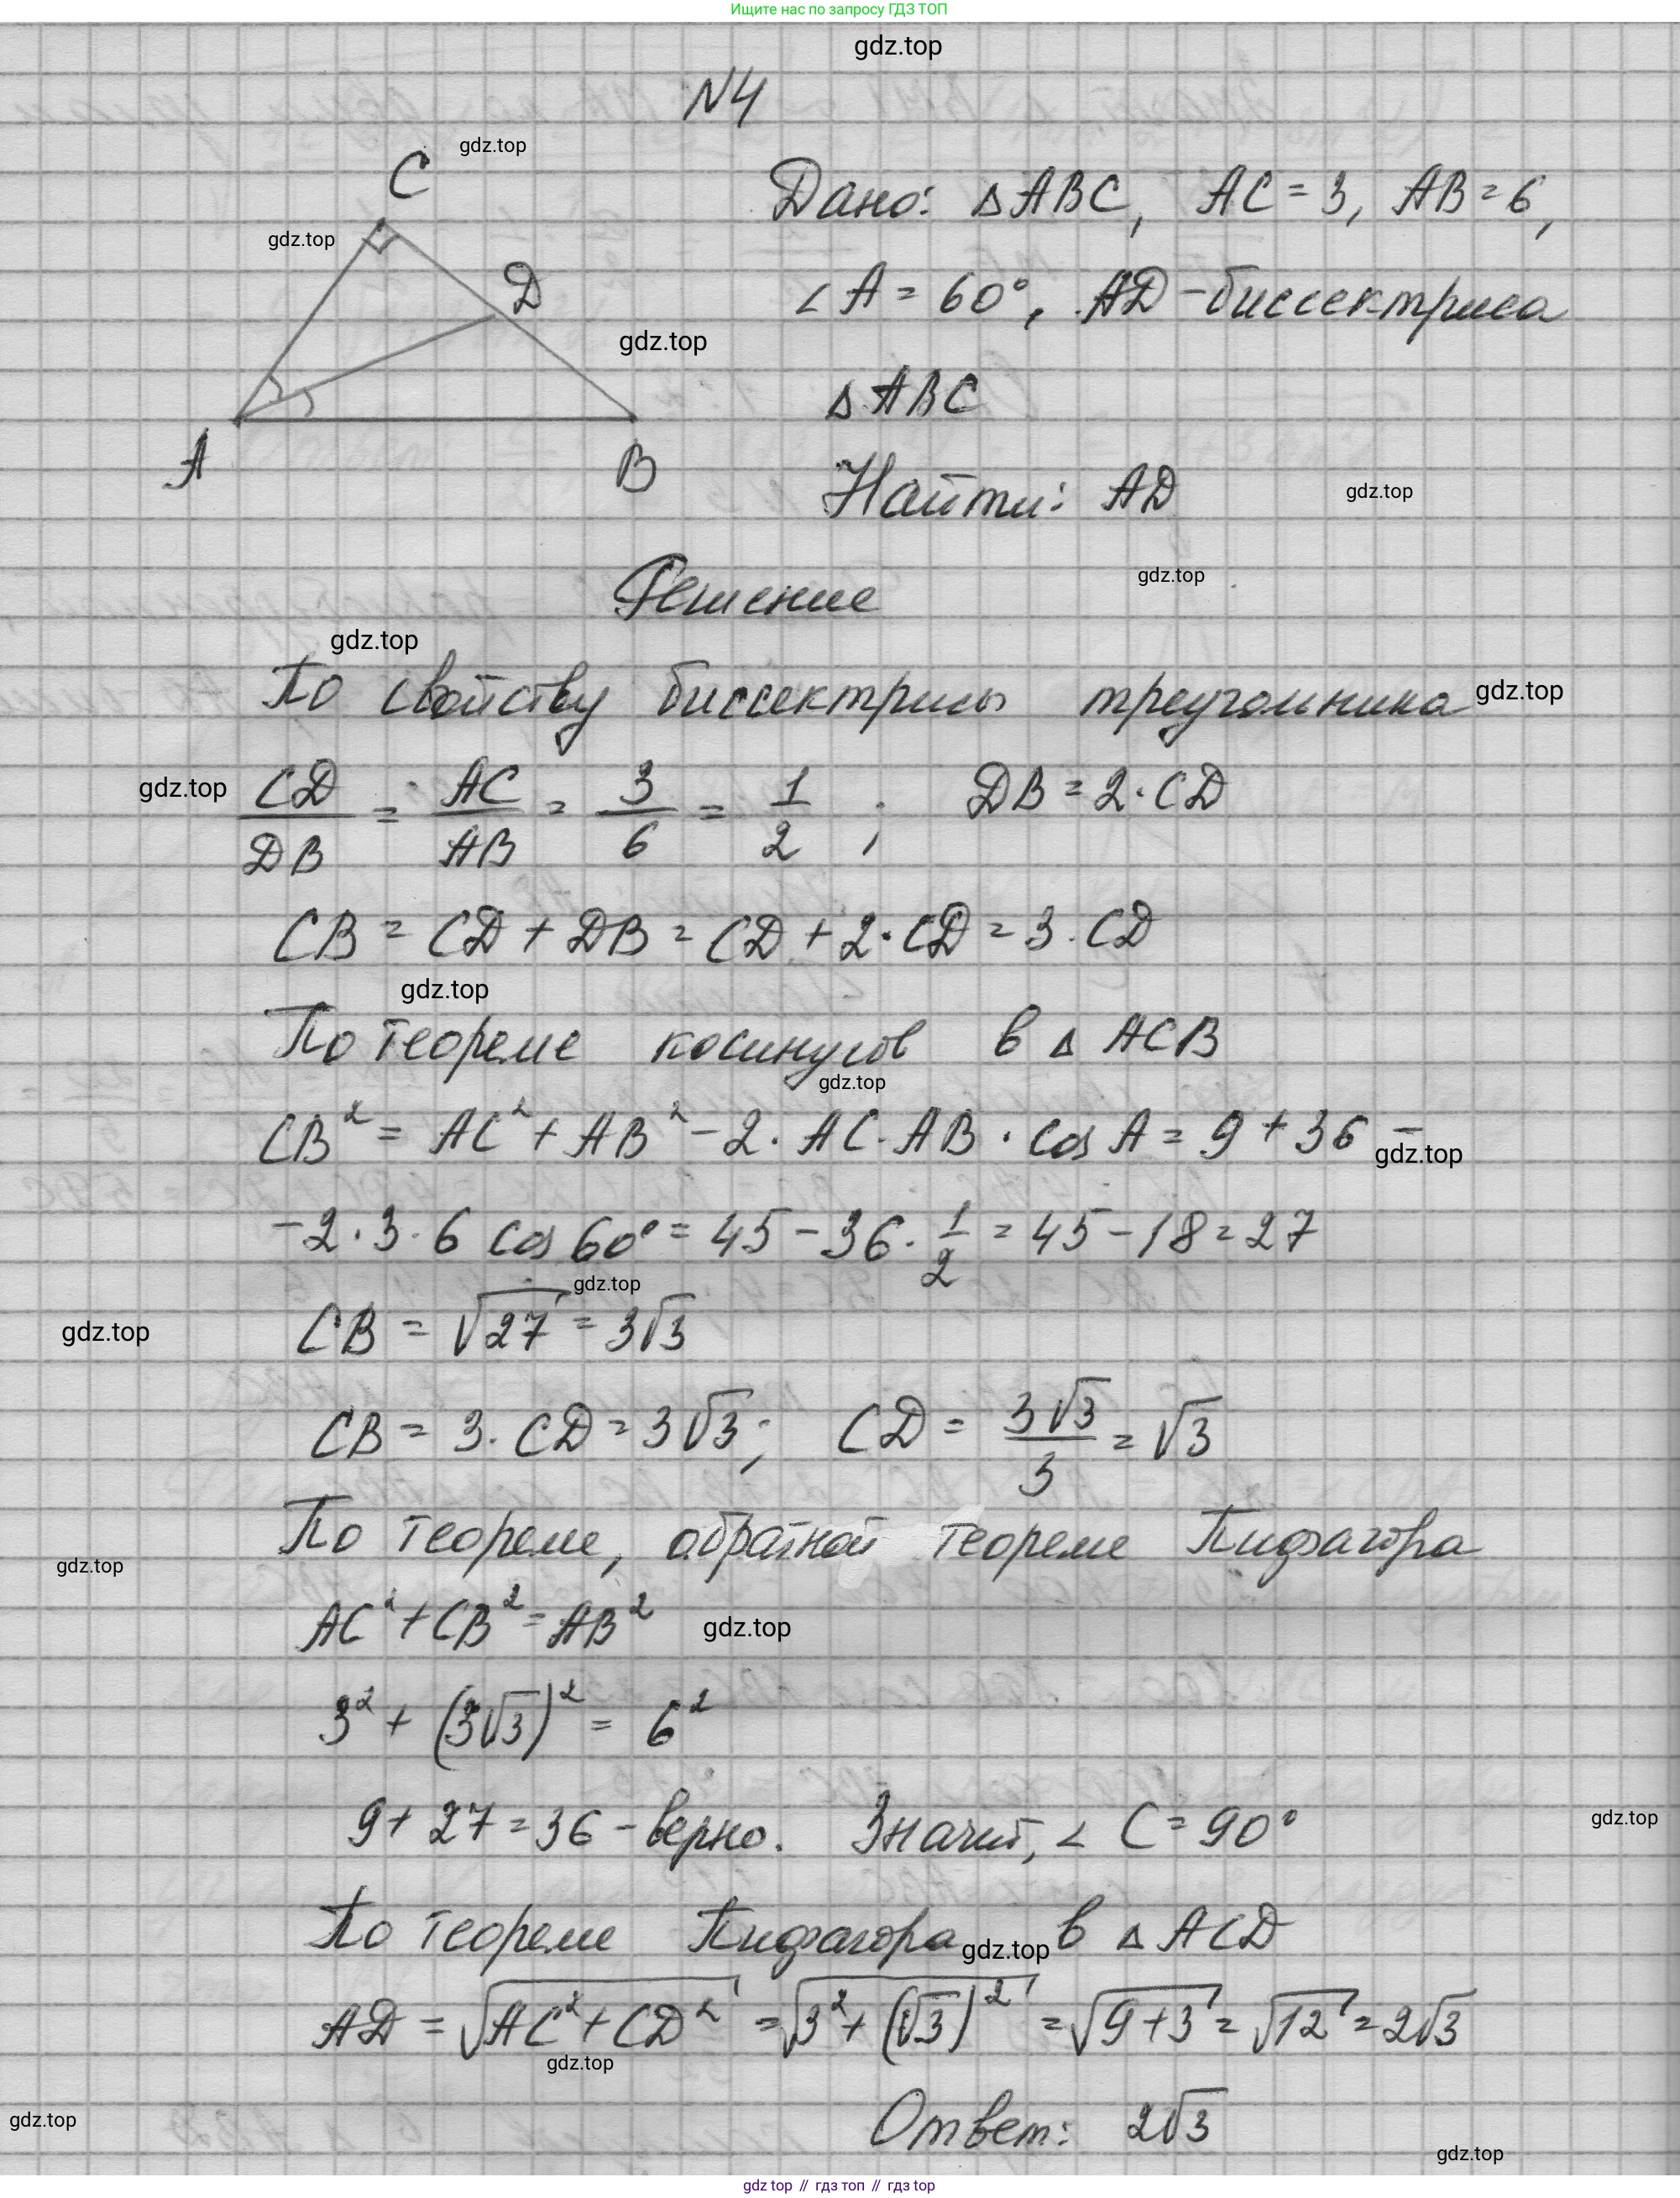 Ищите нас по запросу ГДЗ ТОП
gdz.top
N4
C
gdz.top
Дано: △ABC, AC = 3, AB = 6,
gdz.top
D
∠A = 60°, AD - биссектриса
gdz.top
△ABC
A
B
Найти: AD
gdz.top
Решение
gdz.top
gdz.top
По свойству биссектрисы треугольника
gdz.top
gdz.top
CD/DB = AC/AB = 3/6 = 1/2 ; DB = 2·CD
CB = CD + DB = CD + 2·CD = 3·CD
gdz.top
По теореме косинусов в △ACB
gdz.top
CB² = AC² + AB² - 2·AC·AB·cos A = 9 + 36 -
gdz.top
- 2·3·6 cos 60° = 45 - 36·1/2 = 45 - 18 = 27
gdz.top
CB = √27 = 3√3
gdz.top
CB = 3·CD = 3√3; CD = 3√3/3 = √3
По теореме, обратной теореме Пифагора
gdz.top
AC² + CB² = AB²
gdz.top
3² + (3√3)² = 6²
9 + 27 = 36 - верно. Значит, ∠C = 90°
gdz.top
По теореме Пифагора в △ACD
gdz.top
AD = √(AC² + CD²) = √(3² + (√3)²) = √(9+3) = √12 = 2√3
gdz.top
Ответ: 2√3
gdz.top
gdz.top
gdz top // гдз топ // gdz top